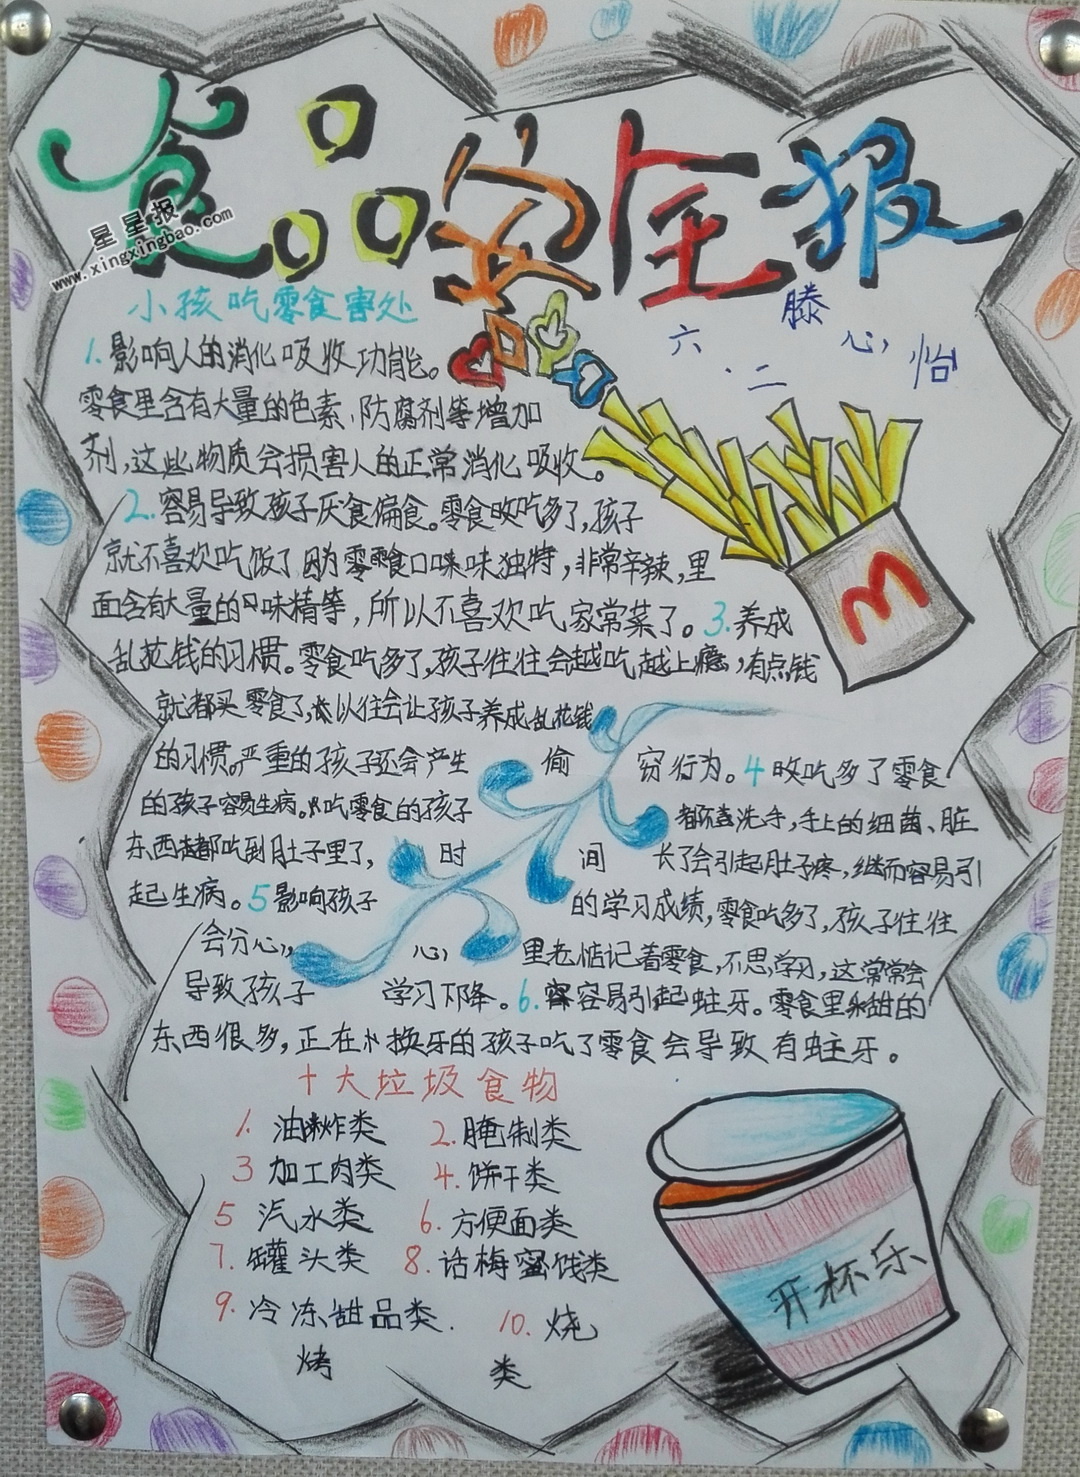 食品安全报
星星报
www.xingxingbao.com
小孩吃零食害处
六.二
滕心怡
1.影响人的消化吸收功能。
零食里含有大量的色素,防腐剂等增加
剂,这些物质会损害人的正常消化吸收。
2.容易导致孩子厌食偏食。零食吃多了,孩子
就不喜欢吃饭了因为零食口味独特,非常辛辣,里
面含有大量的味精等,所以不喜欢吃家常菜了。3.养成
乱花钱的习惯。零食吃多了,孩子往往会越吃越上瘾,有点钱
就都买零食了,长以往会让孩子养成乱花钱
的习惯。严重的孩子还会产生偷窃行为。4吃多了零食
的孩子容易生病。吃零食的孩子都不洗手,手上的细菌、脏
东西都吃到肚子里了,时间长了会引起肚子疼,继而容易引
起生病。5影响孩子的学习成绩,零食吃多了,孩子往往
会分心,心里老惦记着零食,不思学习,这常常会
导致孩子学习下降。6.容易引起蛀牙。零食里甜的
东西很多,正在换牙的孩子吃了零食会导致有蛀牙。
十大垃圾食物
1.油炸类 2.腌制类
3加工肉类 4.饼干类
5汽水类 6.方便面类
7.罐头类 8.话梅蜜饯类
9.冷冻甜品类. 10.烧
烤类
开杯乐